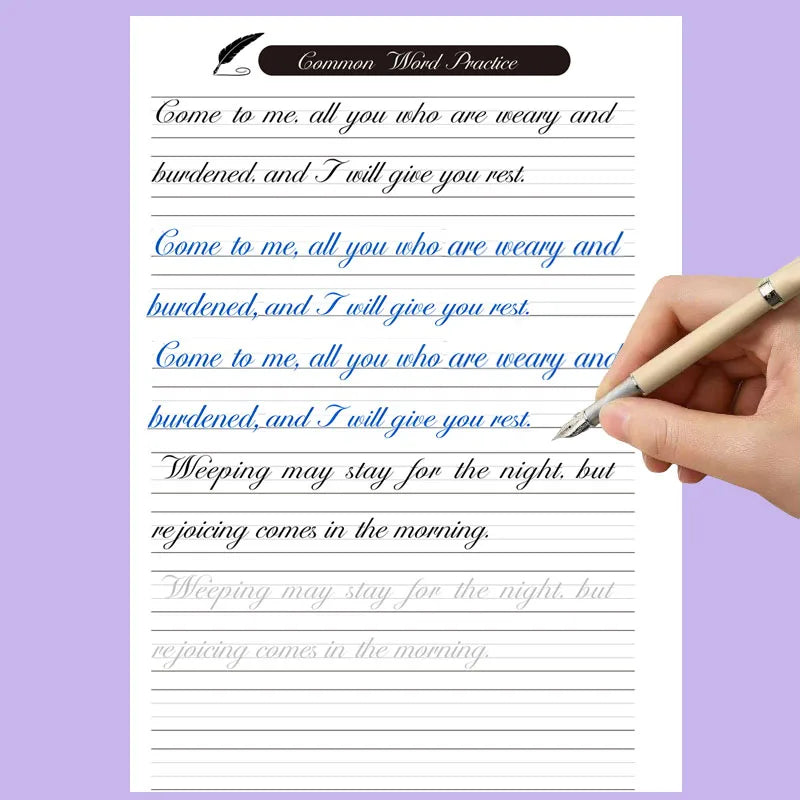 Common Word Practice
Come to me. all you who are weary and
burdened. and I will give you rest.
Come to me, all you who are weary and
burdened, and I will give you rest.
Come to me, all you who are weary and
burdened, and I will give you rest.
Weeping may stay for the night. but
rejoicing comes in the morning.
Weeping may stay for the night. but
rejoicing comes in the morning.